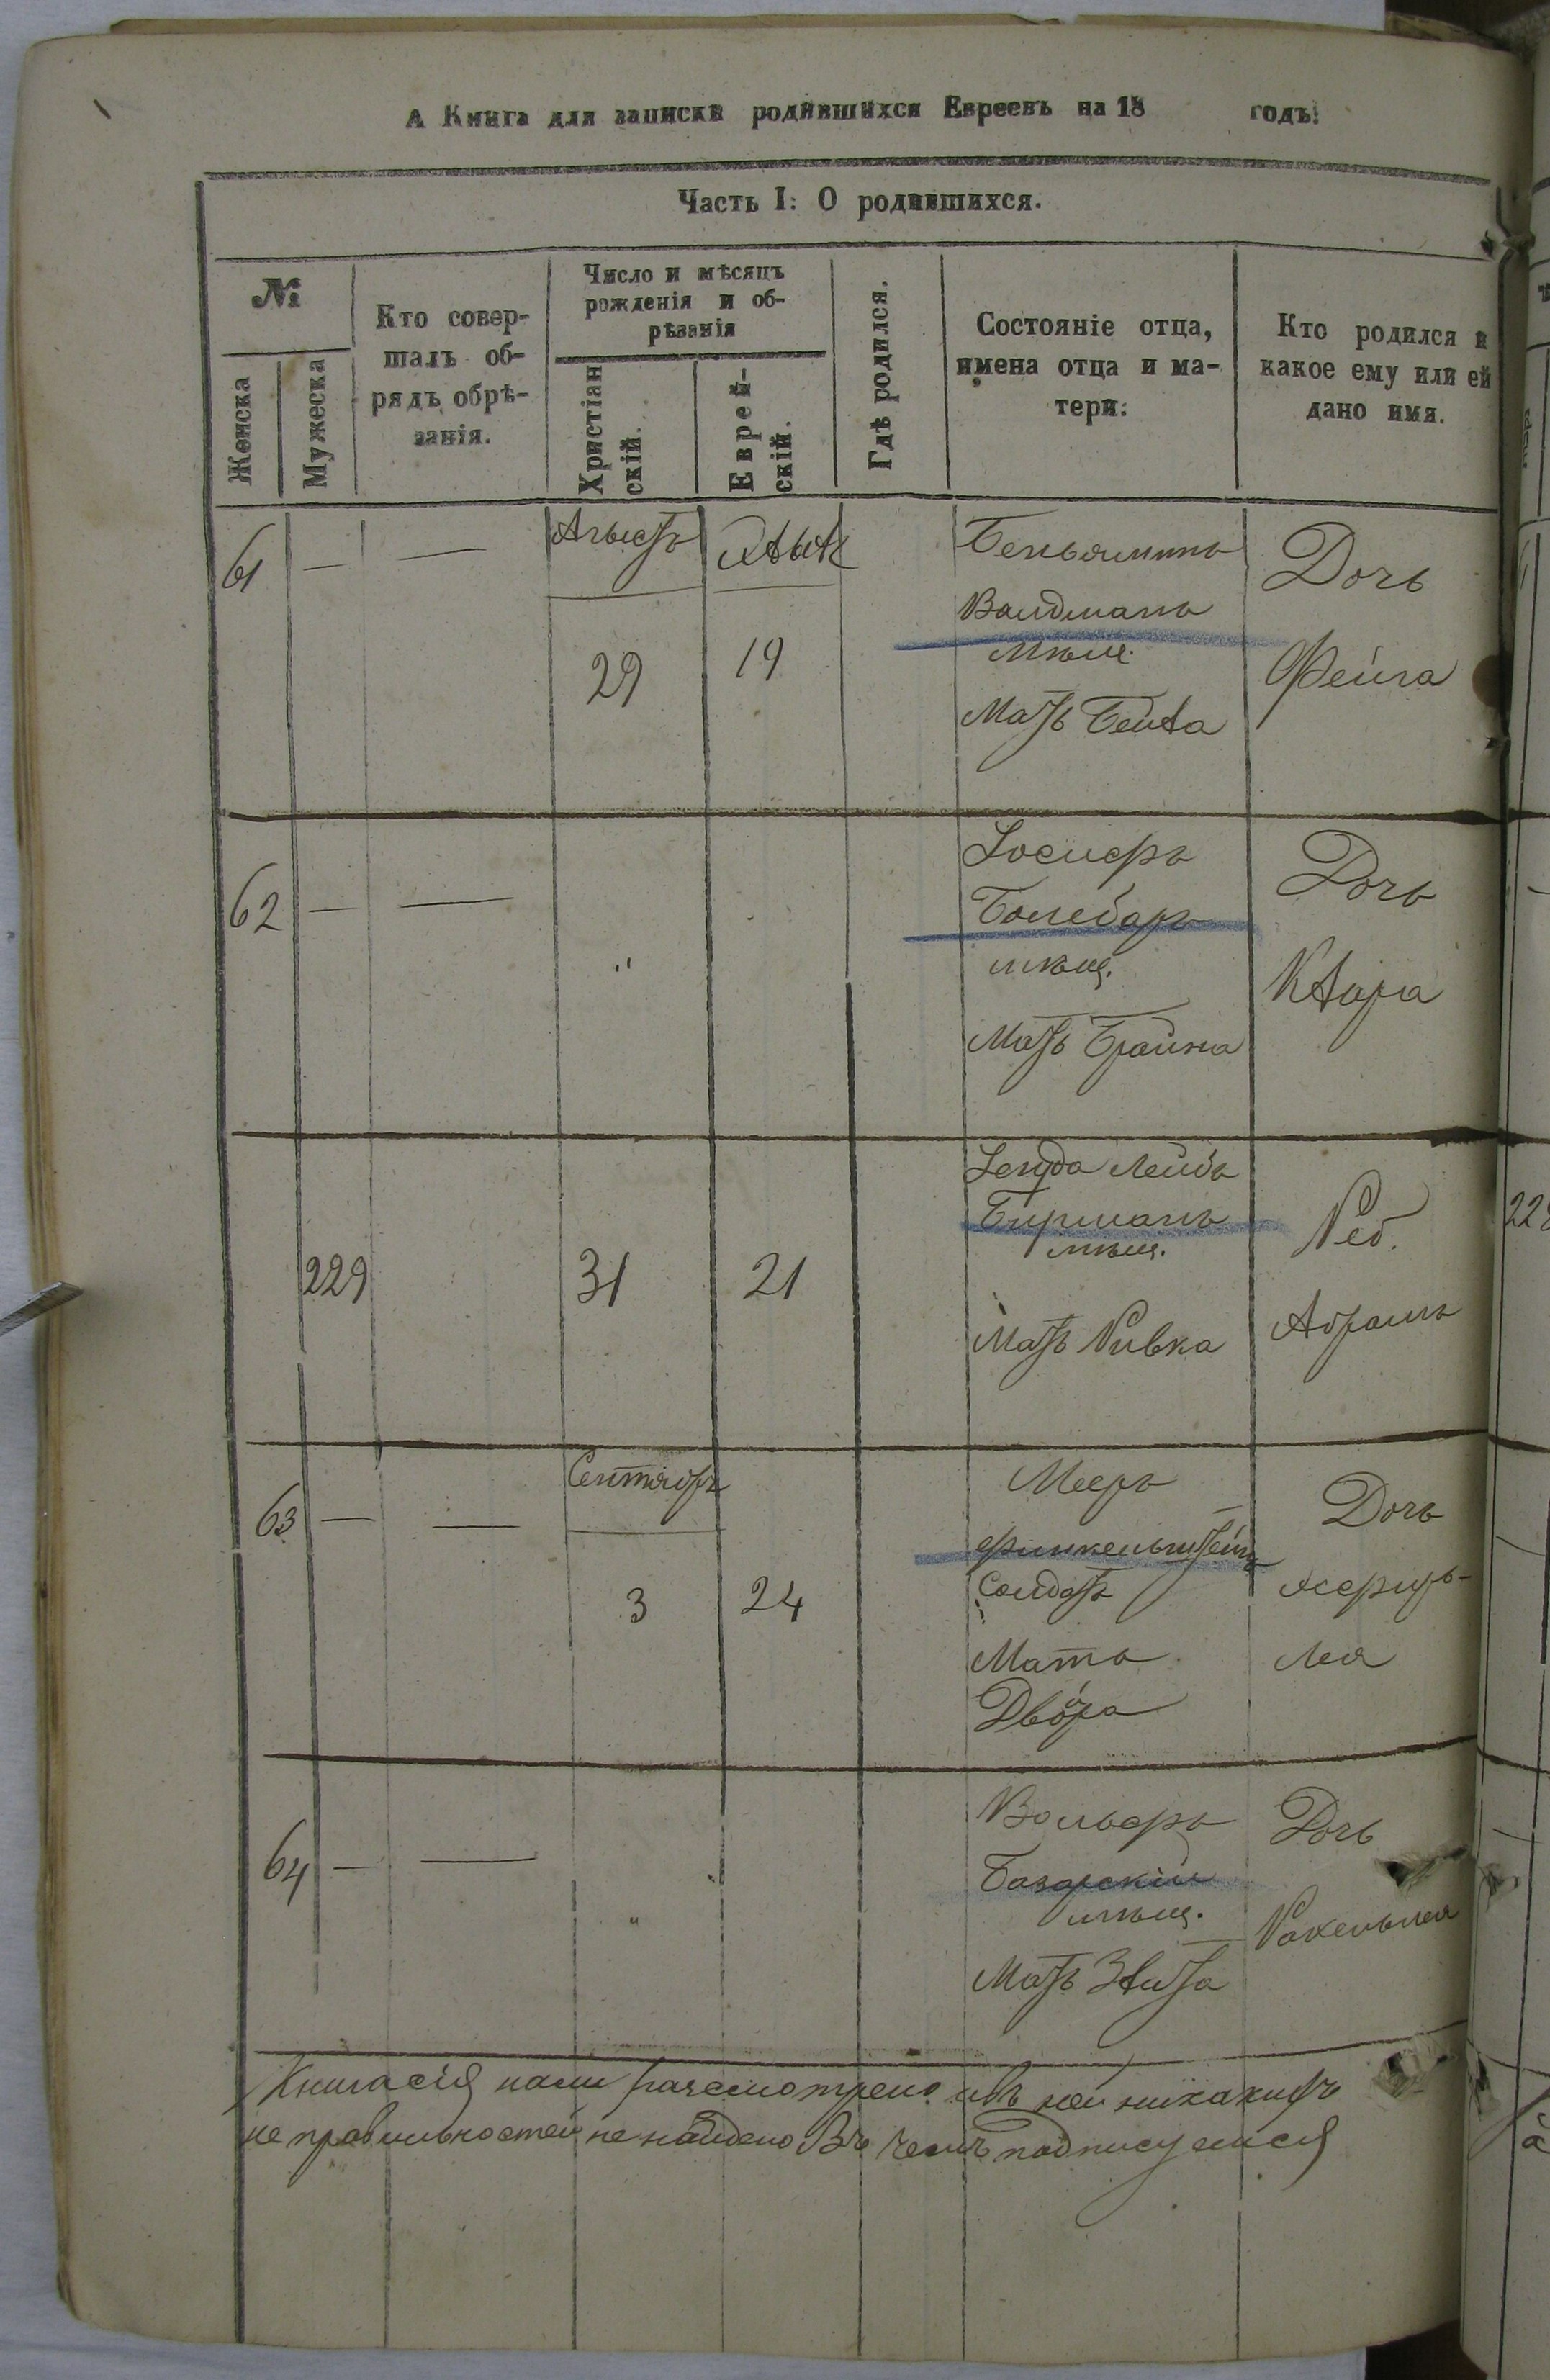 А Книга для записки родившихся Евреевъ на 18 годъ:
Часть I: О родившихся.
№
Женска
Мужеска
Кто совер-
шалъ об-
рядъ обрѣ-
занія.
Число и мѣсяцъ
рожденія и об-
рѣзанія
Христіан
скій.
Еврей-
скій.
Гдѣ родился.
Состояніе отца,
имена отца и ма-
тери:
Кто родился и
какое ему или ей
дано имя.
61 — —
Августъ
29
19
Беньяминъ
Валдманъ
мѣщ.
Мать Бейла
Дочь
Фейга
62 — —
"
Іосифъ
мѣщ.
Мать Брайна
Дочь
Клара
229
31
21
Іегуда Лейбъ
Бирманъ
мѣщ.
Мать Ривка
Реб.
Абрамъ
63 — —
Сентябрь
3
24
Мееръ
Финкельштейнъ
Солдатъ
Мать
Двойра
Дочь
Лея
64 — —
"
Вольфъ
Базарскій
мѣщ.
Мать Злата
Дочь
Рахельлея
Книга сія нами разсмотрено и въ ней никакихъ
не правильностей не найдено Въ чемъ подписуемся